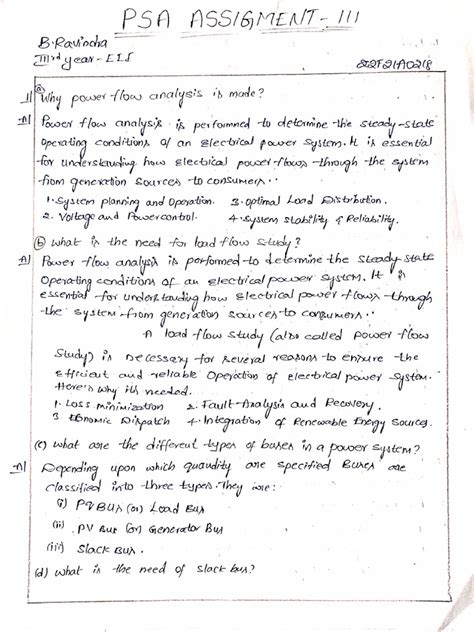 PSA ASSIGMENT-III
B.Ravindra
IIIrd year-EEE
1](a) Why power flow analysis is made?
A] Power flow analysis is performed to determine the steady-state
operating conditions of an electrical power system. It is essential
for understanding how electrical power flows through the system
from generation sources to consumers..
1. System planning and Operation. 3. Optimal Load Distribution.
2. Voltage and Power control. 4. System stability & Reliability.
(b) What is the need for load flow study?
A] Power flow analysis is performed to determine the steady-state
Operating conditions of an electrical power system. It is
essential for understanding how electrical power flows through
the system from generation sources to consumers..
A load flow study (also called power flow
Study) is necessary for several reasons to ensure the
efficient and reliable Operation of electrical power system.
Here's why it's needed.
1. Loss minimization 2. Fault Analysis and Recovery.
3 Economic Dispatch 4. Integration of Renewable Energy Sources.
(c) What are the different types of buses in a power system?
A] Depending upon which quantity are specified Buses are
classified into three types. They are:
(i) PQ BUS (or) Load Bus
(ii) PV Bus (or) Generator Bus
(iii) Slack Bus.
(d) What is the need of slack bus?